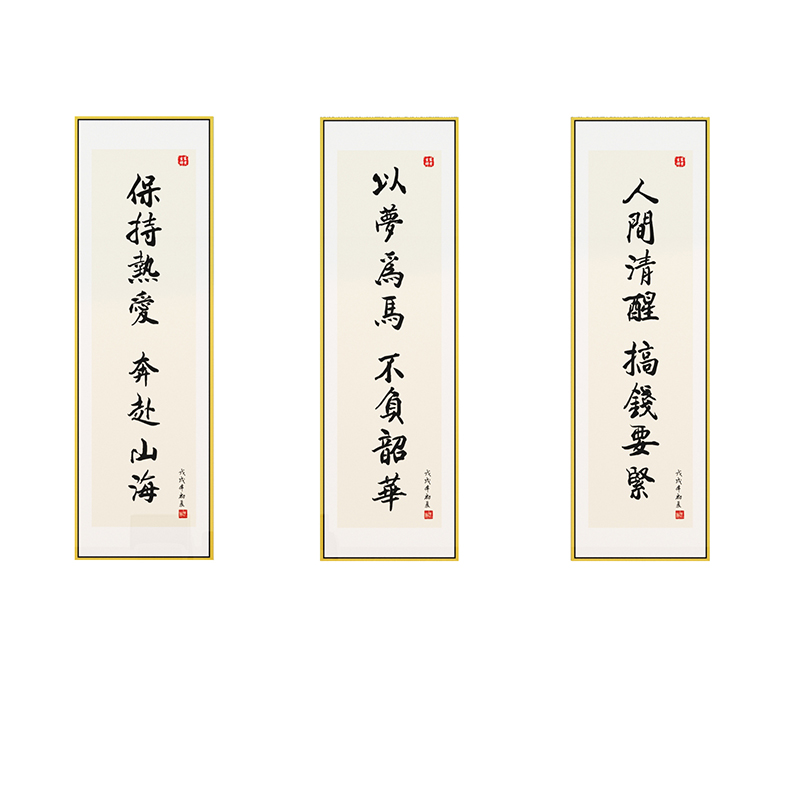 保持熱愛 奔赴山海
戊戌年初夏
以夢爲馬 不負韶華
戊戌年初夏
人間清醒 搞錢要緊
戊戌年初夏